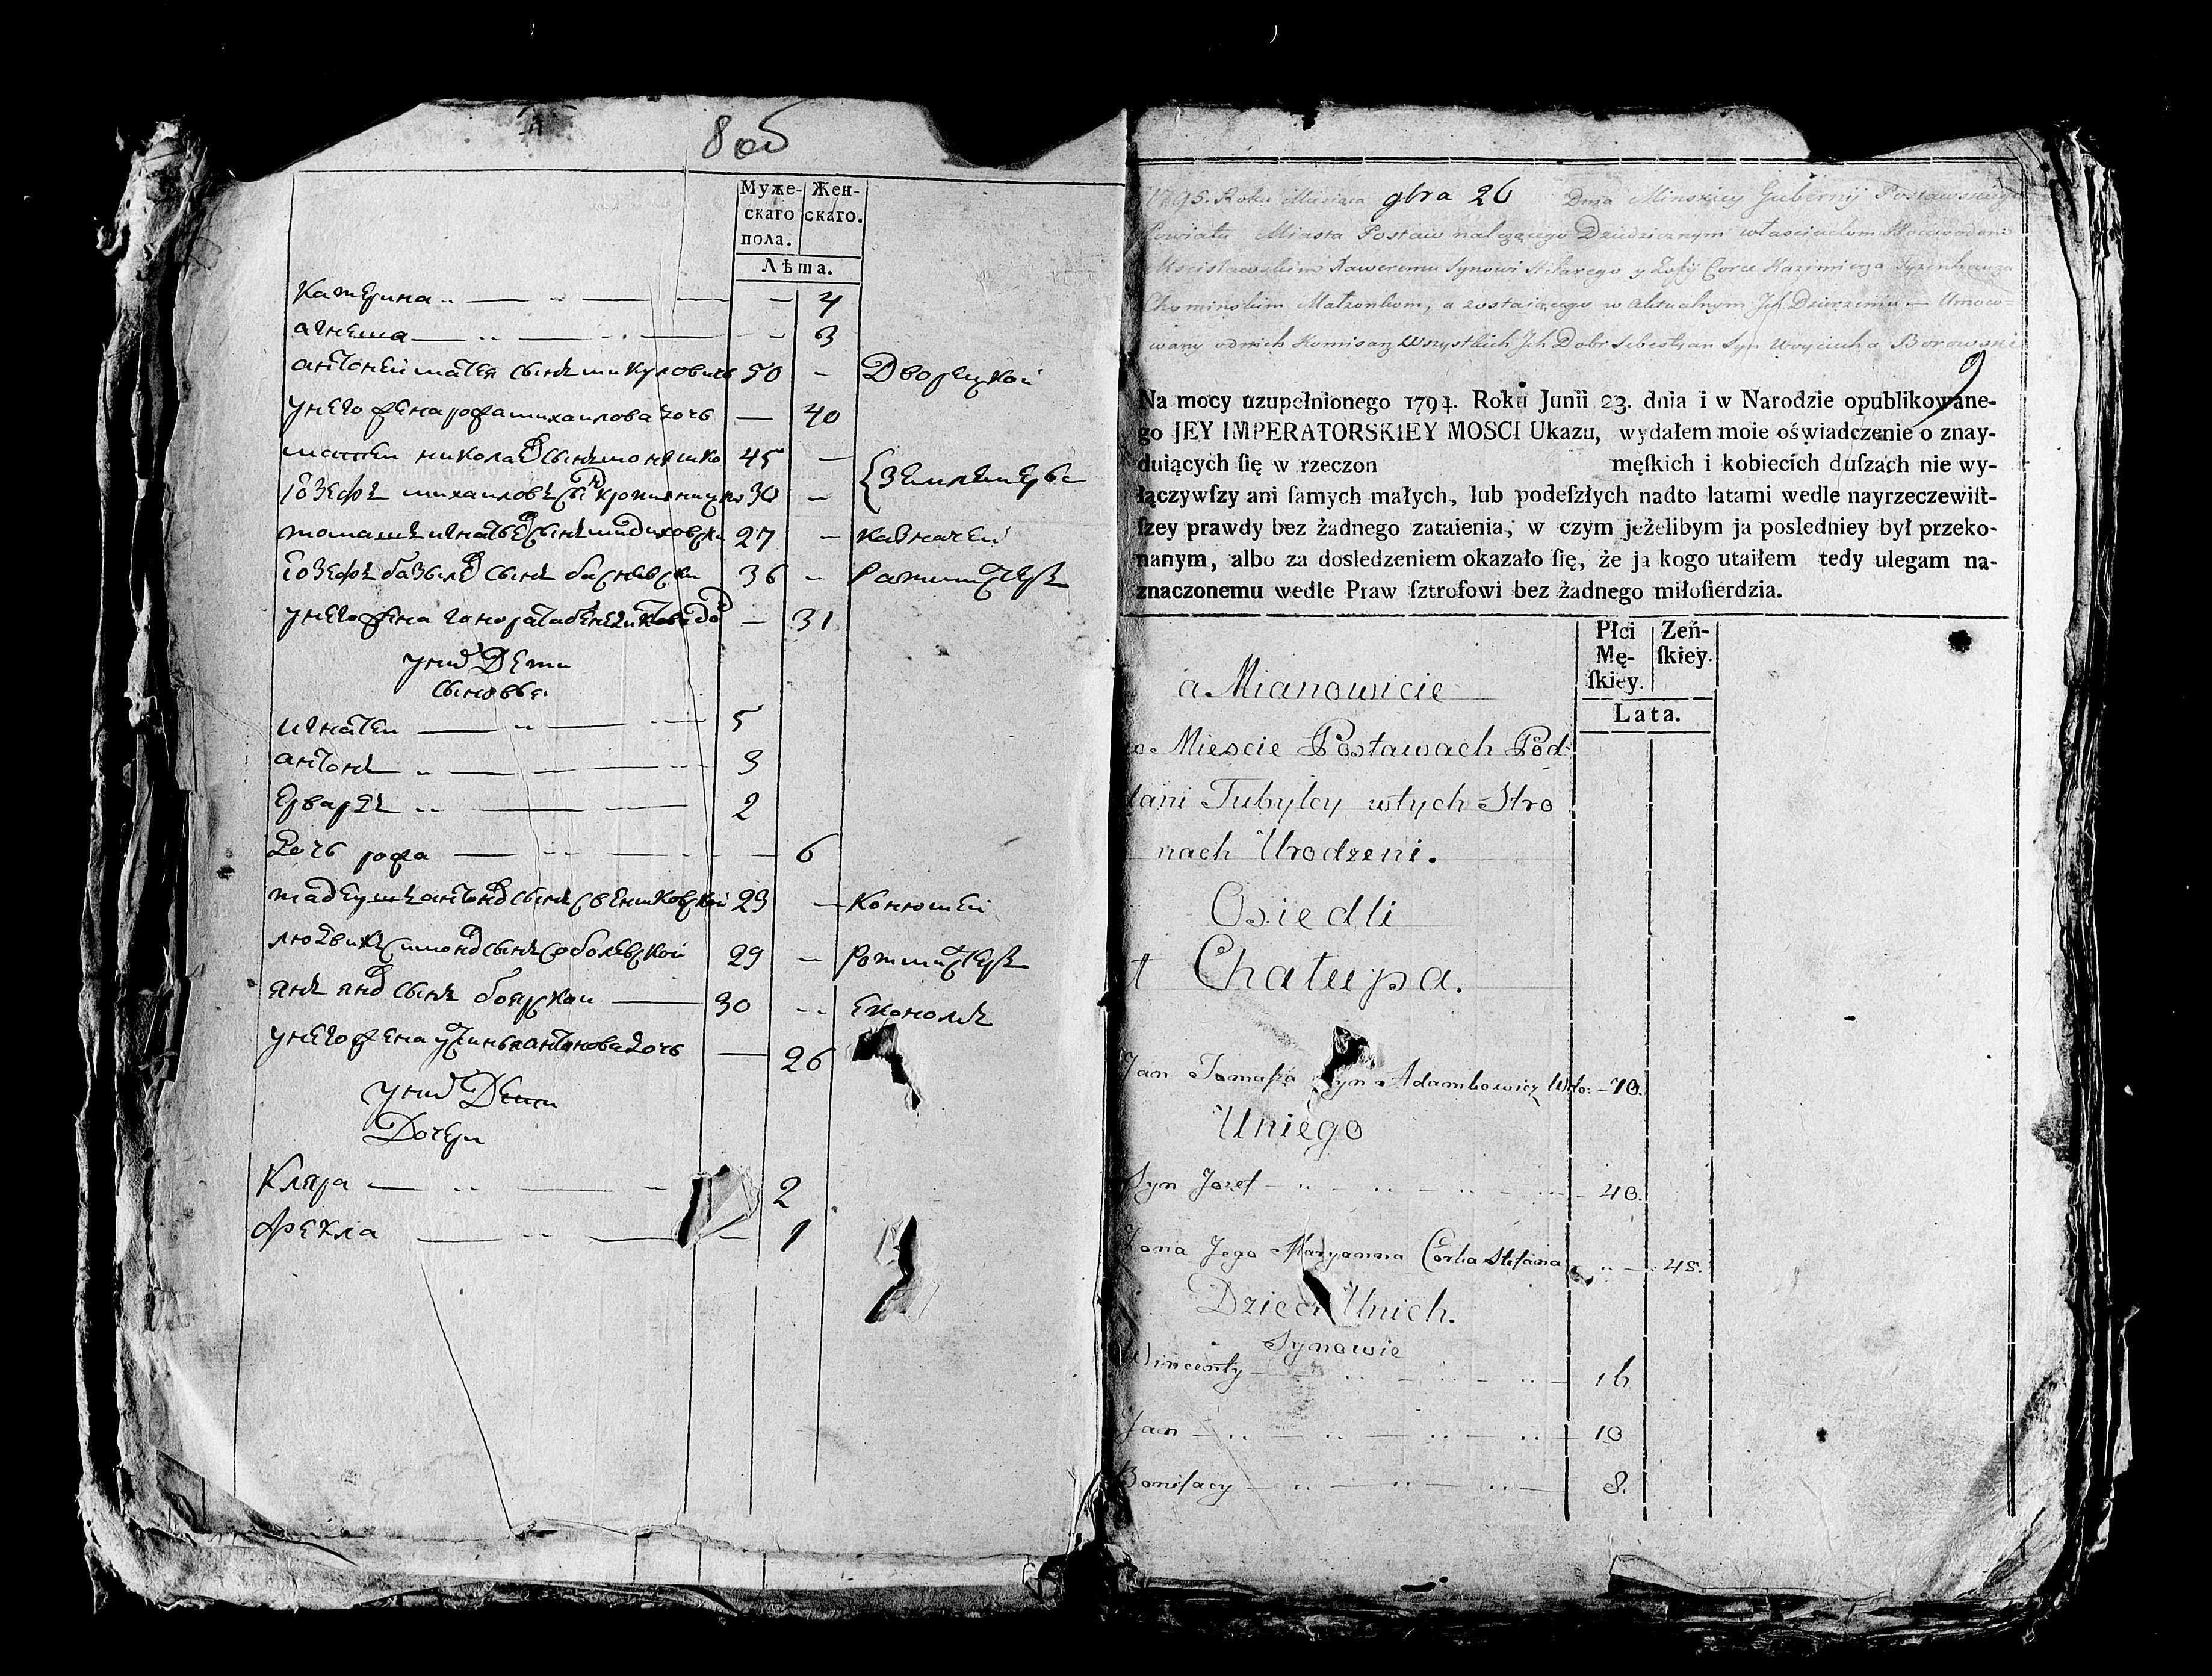 8 об
Муже- Жен-
скаго скаго.
пола.
Лѣта.
Катерина 4
агнета 3
антоней матея сынъ микуловичь 50 Дворецкой
унего жена рофа михаилова дочь 40
матеи николаевъ сынъ 45
іозефъ михаиловъ сынъ 30
томашъ игнатьевъ сынъ 27 казначеи
іозефъ базылевъ сынъ 36 Ратмистеръ
унего жена гонората 31
уних Дети
сыновья
игнатеи 5
антонъ 3
Едвардъ 2
дочь рофа 6
тадеушъ антоновъ сынъ 23 Конюшеи
людвикъ симоновъ сынъ соболевской 29 Ротмистеръ
янъ яновъ сынъ боярской 30 Економъ
унего жена устинья антонова дочь 26
уних Дети
Дочери
Кляра 2
Фекла 1
1795. Roku Miesiąca 9bra 26 Dnia Minskiey Gubernij Postawskiego
Powiatu Miasta Postaw należącego Dziedzicznym własciciełom Woiewodom
Mscisławskim Xaweremu Synowi Hilarego y Zofij Corce Kazimierza Tyzenhauza
Chominskim Małzonkom, a zostaiącego w Aktualnym Jch Dzierzeniu — Umoco=
wany odnich Komisarz Wszystkich Jch Dobr Sebestyan Syn Woyciecha Borowski
9
Na mocy uzupełnionego 1794. Roku Junii 23. dnia i w Narodzie opublikowane-
go JEY IMPERATORSKIEY MOSCI Ukazu, wydałem moie oświadczenie o znay-
duiących ſię w rzeczon męſkich i kobiecich duſzach nie wy-
łączywſzy ani ſamych małych, lub podeſzłych nadto latami wedle nayrzeczewiſt-
ſzey prawdy bez żadnego zataienia, w czym jeżelibym ja posledniey był przeko-
nanym, albo za dosledzeniem okazało ſię, że ja kogo utaiłem tedy ulegam na-
znaczonemu wedle Praw ſztrofowi bez żadnego miłoſierdzia.
Płci Zeń-
Mę- ſkiey.
ſkiey.
Lata.
a Mianowicie
w Miescie Postawach Pod:
dani Tubylcy wtych Stro
nach Urodzeni.
Osiedli
1 Chałupa.
Jan Tomaſza Syn Adamkowicz Wdo: 70.
Uniego
Syn Jozef 40.
Zona Jego Maryanna Corka Stefana 45.
Dzieci Unich.
Synowie
Wincenty 16
Jan 10
Bonifacy 8.